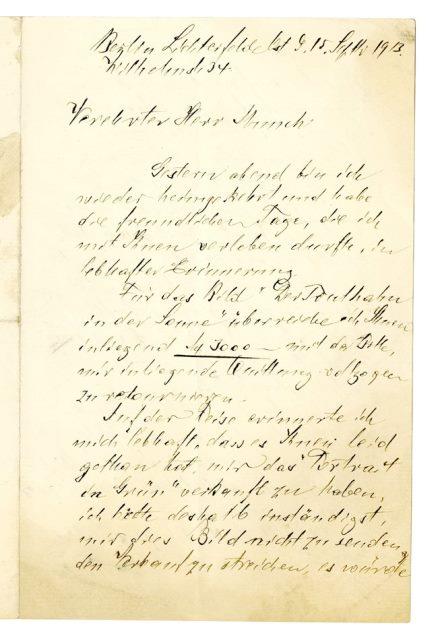 Berlin Lichterfelde Ost d. 15. Septbr 1913.
Wilhelmstr 34
Verehrter Herr Munch
Gestern abend bin ich
wieder heimgekehrt und habe
die freundlichen Tage, die ich
mit Ihnen verleben durfte, in
lebhafter Erinnerung.
Für das Bild "Der Truthahn
in der Sonne" überreiche ich Ihnen
inliegend M 3000 – mit der Bitte,
mir inliegende Quittung vollzogen
zu retournieren.
Auf der Reise erinnerte ich
mich lebhaft, dass es Ihnen leid
gethan hat, mir das "Portrait
in Grün" verkauft zu haben,
ich bitte deshalb inständigst,
mir dies Bild nicht zu senden,
den Verkauf zu streichen, es würde